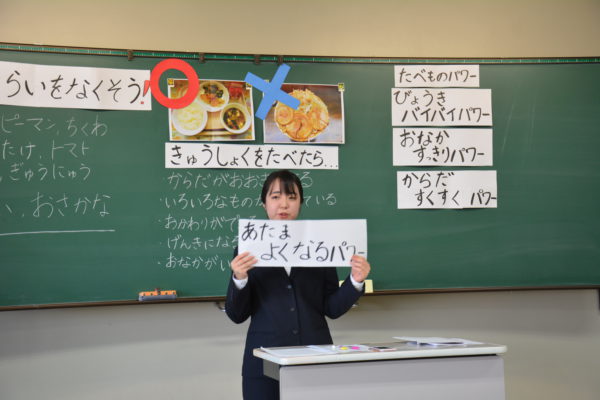 らいをなくそう!
ピーマン、ちくわ
たけ、トマト
ぎゅうにゅう
い おさかな
きゅうしょくをたべたら…
からだがおお
・いろいろなもの ている
・おかわりがで
・げんきになる
・おなかがい
あたま
よくなるパワー
たべものパワー
びょうき
バイバイパワー
おなか
すっきりパワー
からだ
すくすくパワー